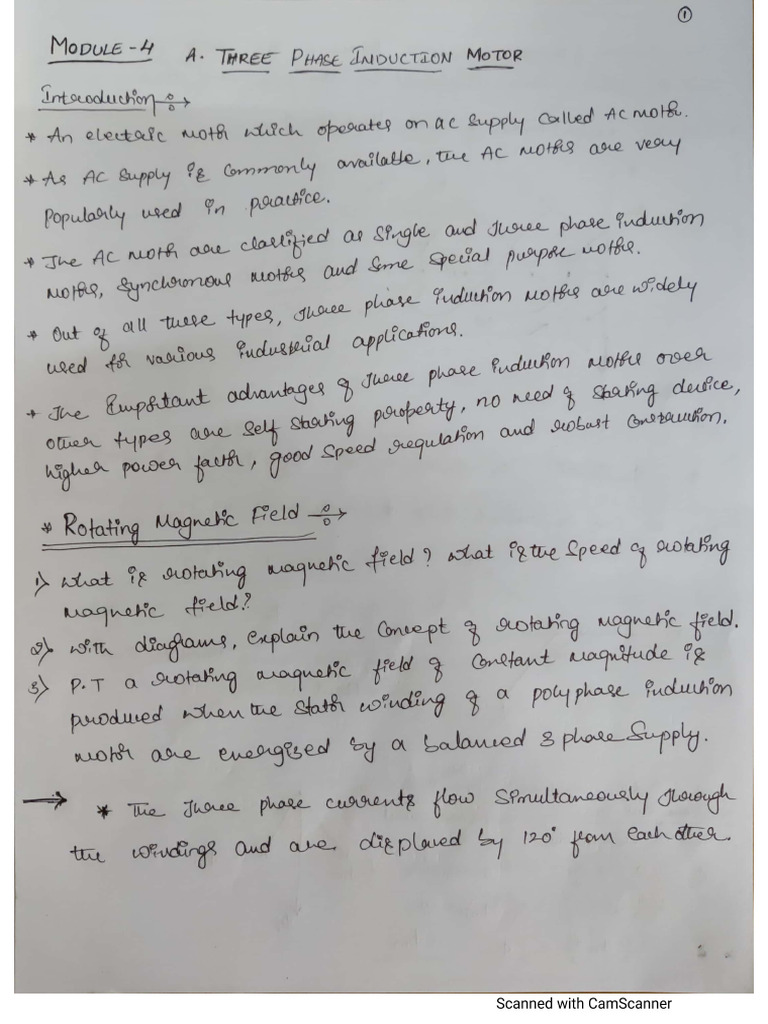 1
MODULE-4 A. THREE PHASE INDUCTION MOTOR
Introduction :→
* An electric motor which operates on ac supply called AC motor.
* As AC supply is commonly available, the AC motors are very
popularly used in practice.
* The AC motor are classified as single and three phase induction
motors, synchronous motors and some special purpose motors.
* Out of all these types, three phase induction motors are widely
used for various industrial applications.
* The important advantages of three phase induction motors over
other types are self starting property, no need of starting device,
higher power factor, good speed regulation and robust construction.
* Rotating Magnetic Field :→
1) What is rotating magnetic field? What is the speed of rotating
magnetic field?
2) With diagrams, explain the concept of rotating magnetic field.
3) P.T a rotating magnetic field of constant magnitude is
produced when the stator winding of a polyphase induction
motor are energised by a balanced 3 phase supply.
→ * The three phase currents flow simultaneously through
the windings and are displaced by 120° from each other.
Scanned with CamScanner